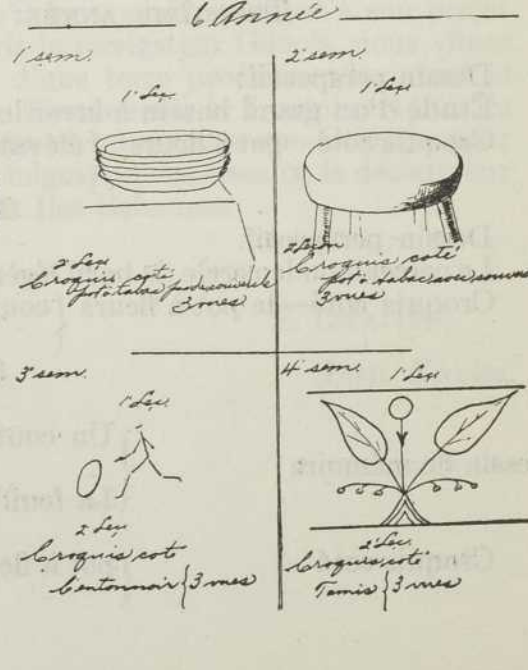 6 Année
1 sem.
1 Leç
2 Leç
Croquis coté
pot à tabac
3 vues
2 sem
1 Leç
2 Leç
Croquis coté
pot à tabac avec couvercle
3 vues
3 sem.
1 Leç.
2 Leç
Croquis cot
L'entonnoir { 3 vues
4 sem.
1 Leç
2 Leç.
Croquis coté
Tamis } 3 vues